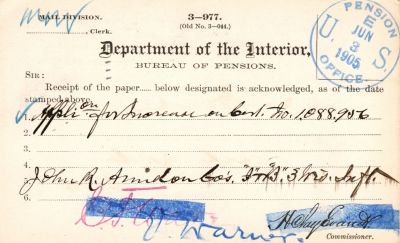 MAIL DIVISION.
3—977.
(Old No. 3—044.)
, Clerk.
PENSION
U. S.
JUN
3
1905
OFFICE.
Department of the Interior,
BUREAU OF PENSIONS.
SIR:
Receipt of the paper below designated is acknowledged, as of the date
stamped above.
1. Appli on for Increase on Cert. No. 1,088,956
2.
3.
4.
5. John R. Co's. 3 Wis. Inft.
6.
Warner.
H Clay Evans
Commissioner.